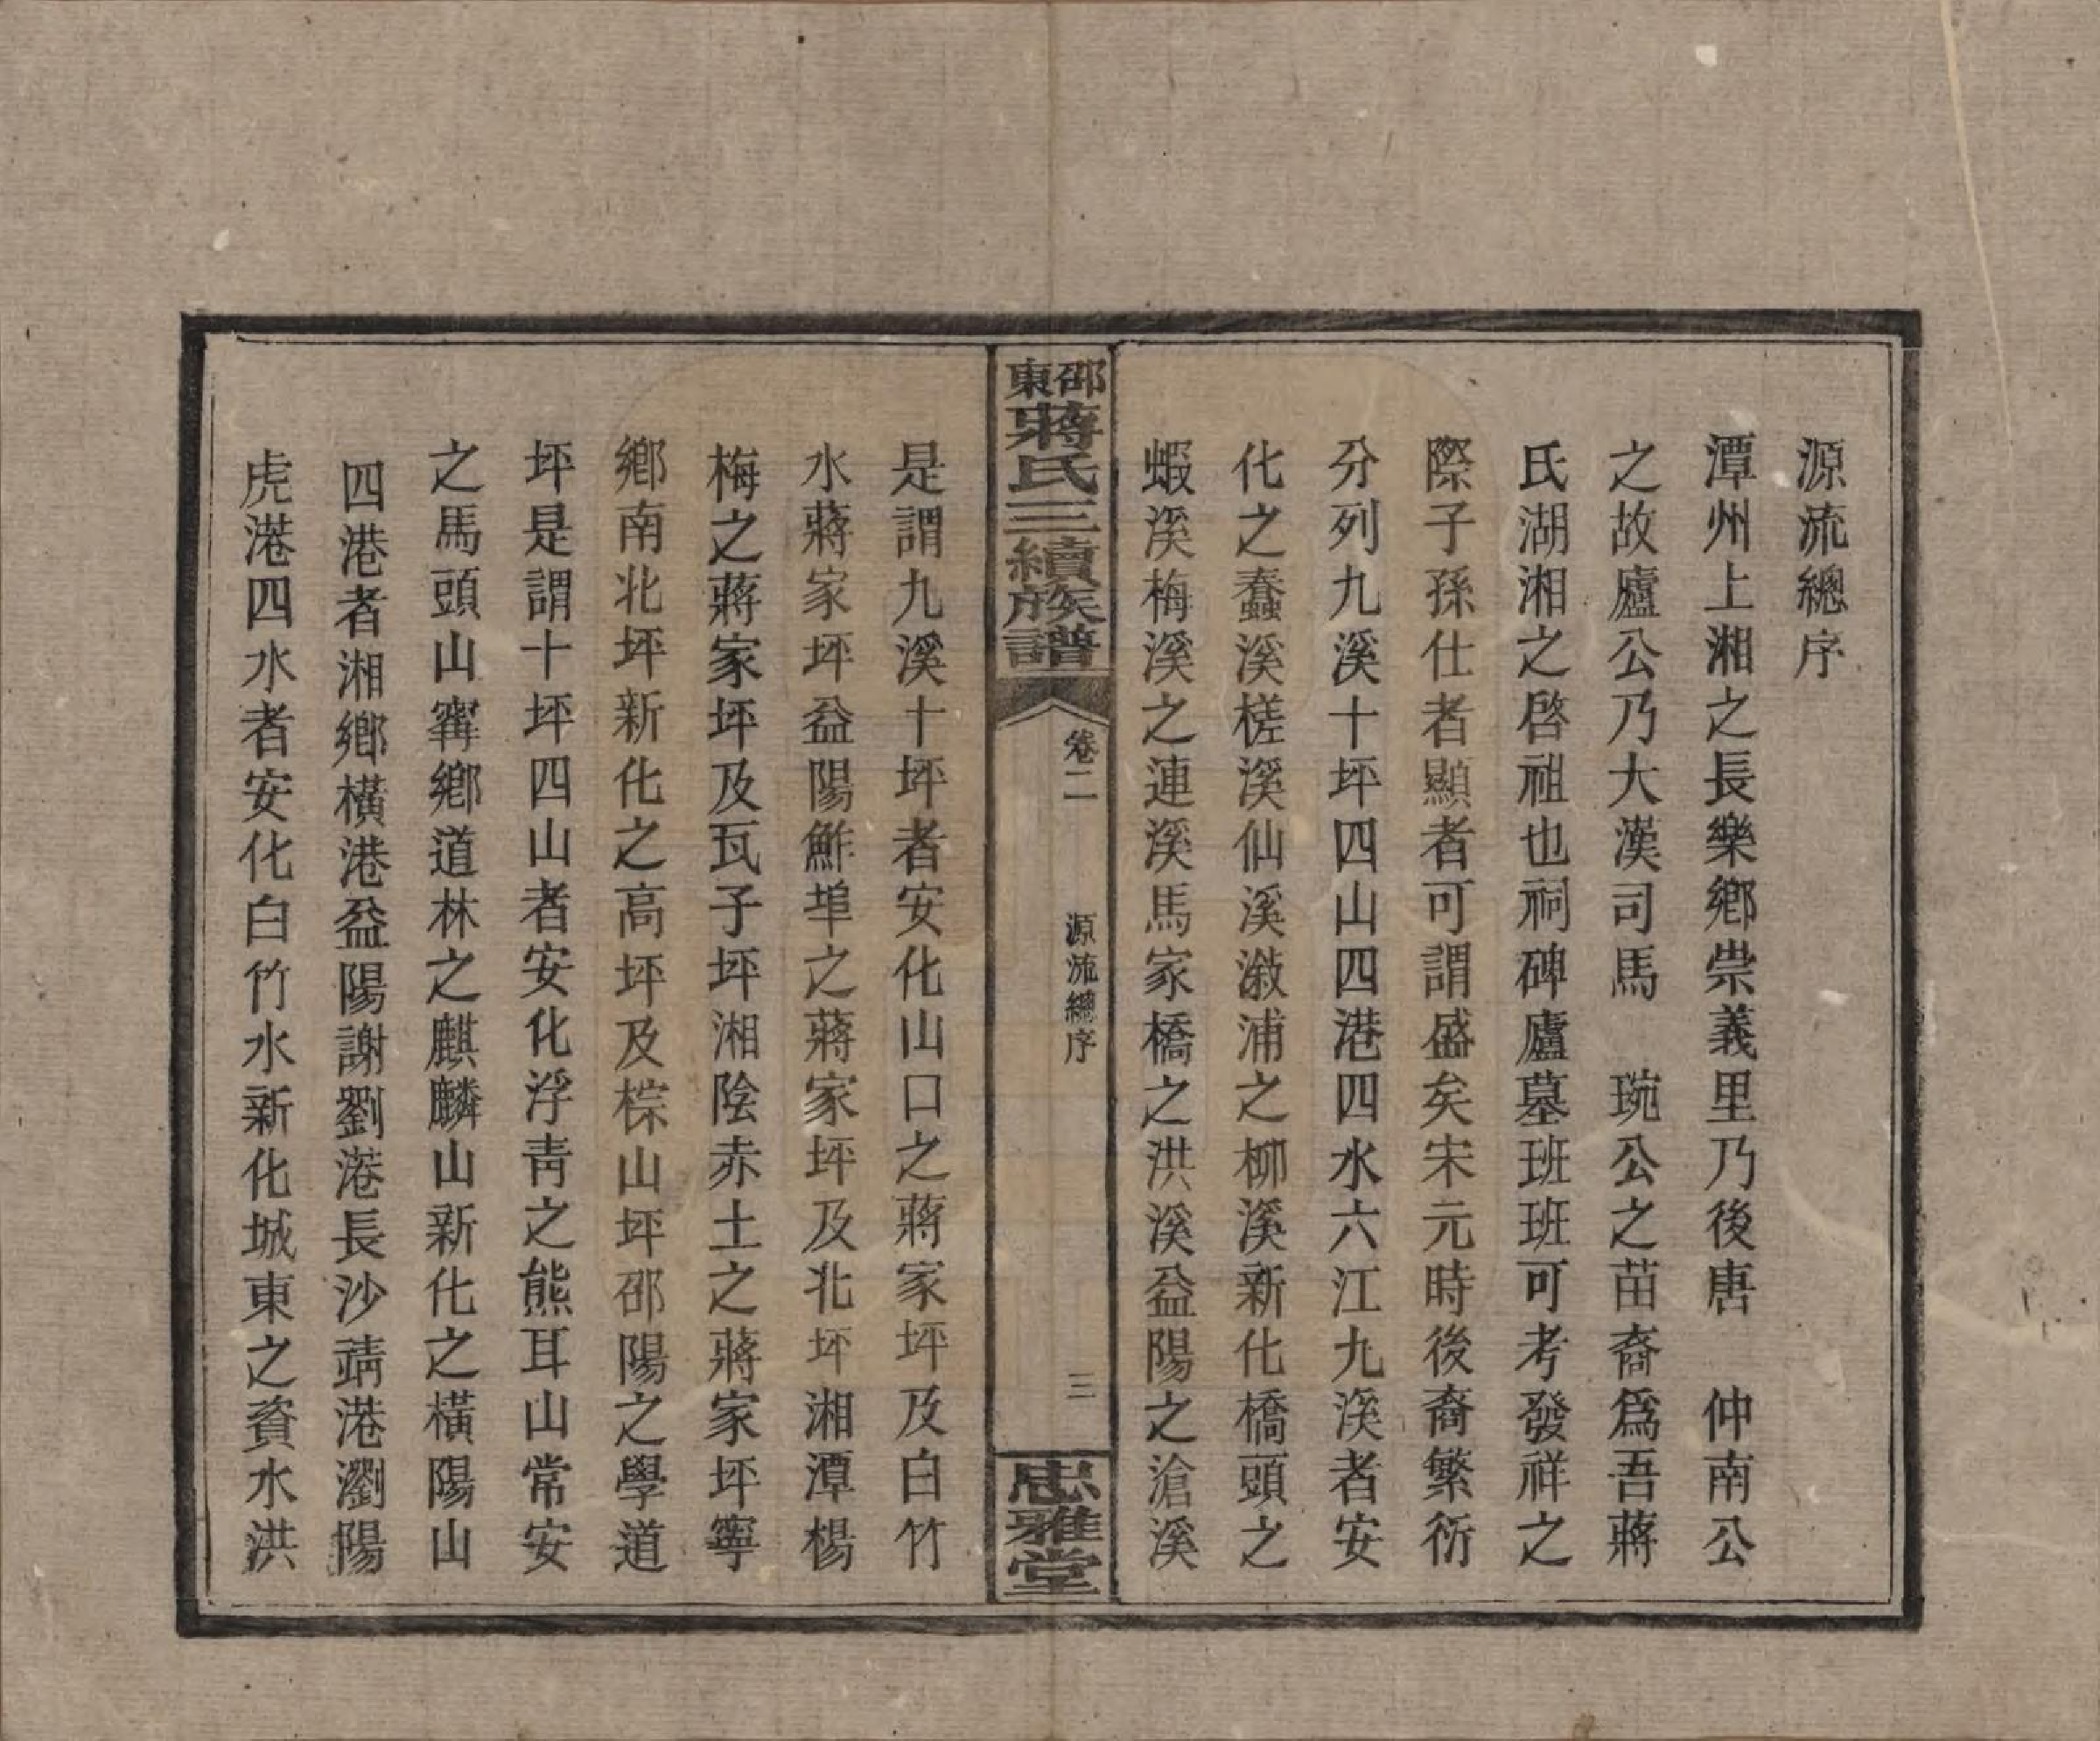 源流總序
潭州上湘之長樂鄉崇義里乃後唐　仲南公
之故廬公乃大漢司馬　琬公之苗裔爲吾蔣
氏湖湘之啓祖也祠碑廬墓班班可考發祥之
際子孫仕者顯者可謂盛矣宋元時後裔繁衍
分列九溪十坪四山四港四水六江九溪者安
化之蠢溪槎溪仙溪漵浦之柳溪新化橋頭之
蝦溪梅溪之連溪馬家橋之洪溪益陽之滄溪
邵東蔣氏三續族譜
卷二
源流總序
三
忠雅堂
是謂九溪十坪者安化山口之蔣家坪及白竹
水蔣家坪益陽鮓埠之蔣家坪及北坪湘潭楊
梅之蔣家坪及瓦子坪湘陰赤土之蔣家坪寧
鄉南北坪新化之高坪及棕山坪邵陽之學道
坪是謂十坪四山者安化浮靑之熊耳山常安
之馬頭山寗鄉道林之麒麟山新化之橫陽山
四港者湘鄉橫港益陽謝劉港長沙靖港瀏陽
虎港四水者安化白竹水新化城東之資水洪